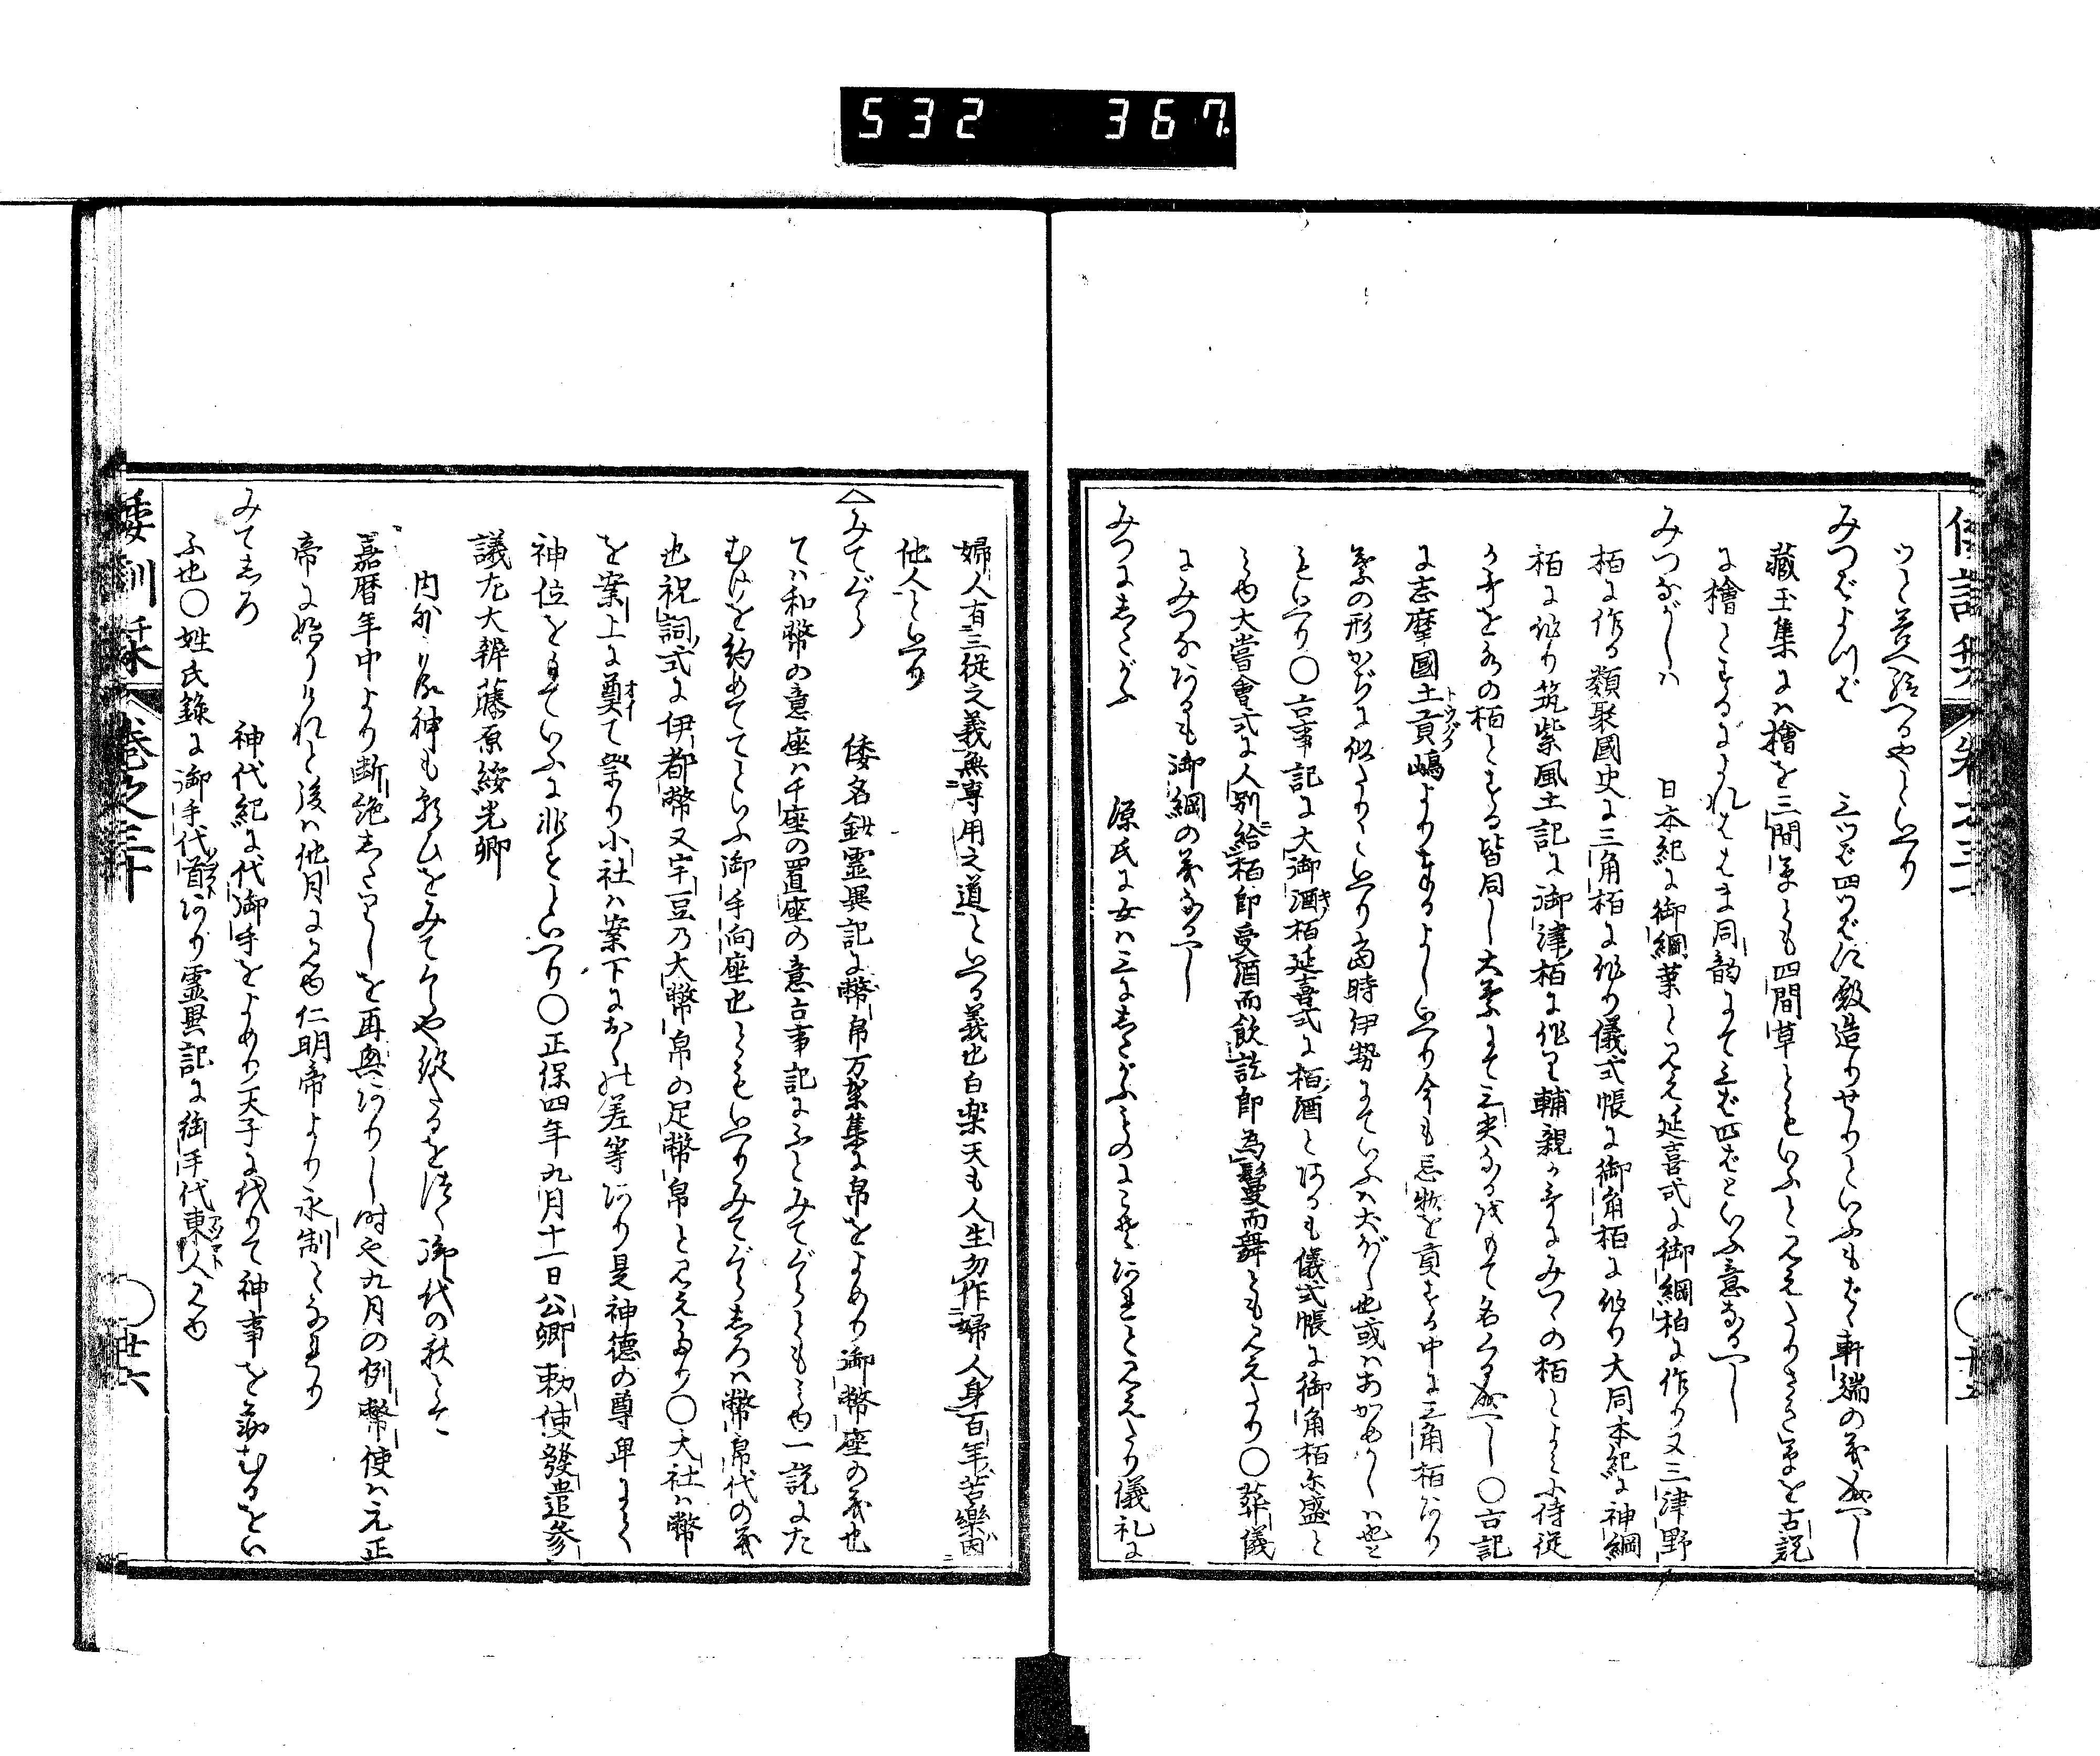 532 367
つと答へ給へるやといへり
みつばよつば 三ツば四ツばに殿造りせりといふもばゝ軒端の義成べし
藏玉集には檜を三間草とも四間草ともいふと見えたりさき草を古説
に檜とするによれはま同韵にて三ば四ばといふ意なるべし
みつながしは 日本紀に御綱葉と見え延喜式に御綱柏に作り又三津野
柏に作る類聚國史に三角柏に作り儀式帳に御角柏に作り大同本紀に神綱
柏に作り筑紫風土記に御津柏に作れり輔親か哥にみつの柏とよみ侍従
か哥を水の柏とする皆同し大葉にて三尖なる を以て名くる成べし〇古記
に志摩國土貢嶋より奉るよしいへり今も忌物を貢する中に三角柏あり
葉の形かぢに似たりといへり當時伊勢にていふは大がし也或はあかめかしは也と
もいへり〇古事記に大御酒柏延喜式に柏酒とあるも儀式帳に御角柏尓盛と
みゆ大嘗會式に人別給柏即受酒而飲訖即為鬘而舞とも見えたり〇葬儀
にみつなあるも御綱の義なるべし
みつにしたがふ 源氏に女は三にしたがふものにこそあれと見えたり儀礼に
婦人有三従之義無専用之道といへる義也白楽天も人生勿作婦人身百年苦樂因
他人といへり
みてぐら 倭名鈔霊異記に幣帛万葉集に帛をよめり御幣座の義也
ては和幣の意座は千座の置座の意古事記にふとみてぐらともみゆ一説にた
むけを約めててといふ御手向座也ともいへりみてぐらしろは幣帛代の義
也祝詞式に伊都幣又宇豆乃大幣帛の足幣帛と見えたり〇大社は幣
を案上に奠て祭り小社は案下におく此差等あり是神徳の尊卑によて
神位をもていふに非ずといへり〇正保四年九月十一日公卿勅使發遣参
議左大辨藤原綏光卿
内外の神も猶ひをみてくや絶たるを継く御代の秋とて
嘉暦年中より断絶したりしを再興ありし時也九月の例幣使は元正
帝に始りけれと後は他月に見ゆ仁明帝より永制となれり
みてしろ 神代紀に代御手をよめり天子に代りて神事を勤むるをい
ふ也〇姓氏錄に御手代首あり霊異記に御手代東人見ゆ
倭訓栞 巻之三十 〇廿六